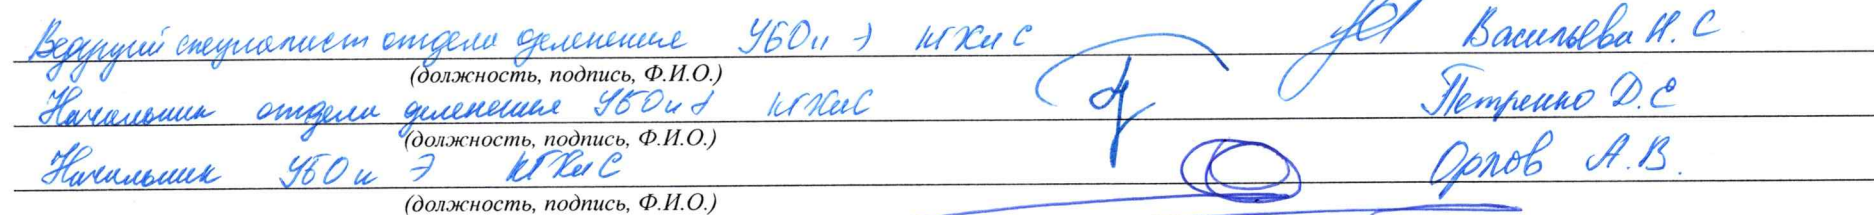 Ведущий специалист отдела озеленения УБО и Э КГХиС Васильева Н. С
(должность, подпись, Ф.И.О.)
Начальник отдела озеленения УБО и Э КГХиС Петренко Д.С
(должность, подпись, Ф.И.О.)
Начальник УБО и Э КГХиС Орлов А.В.
(должность, подпись, Ф.И.О.)